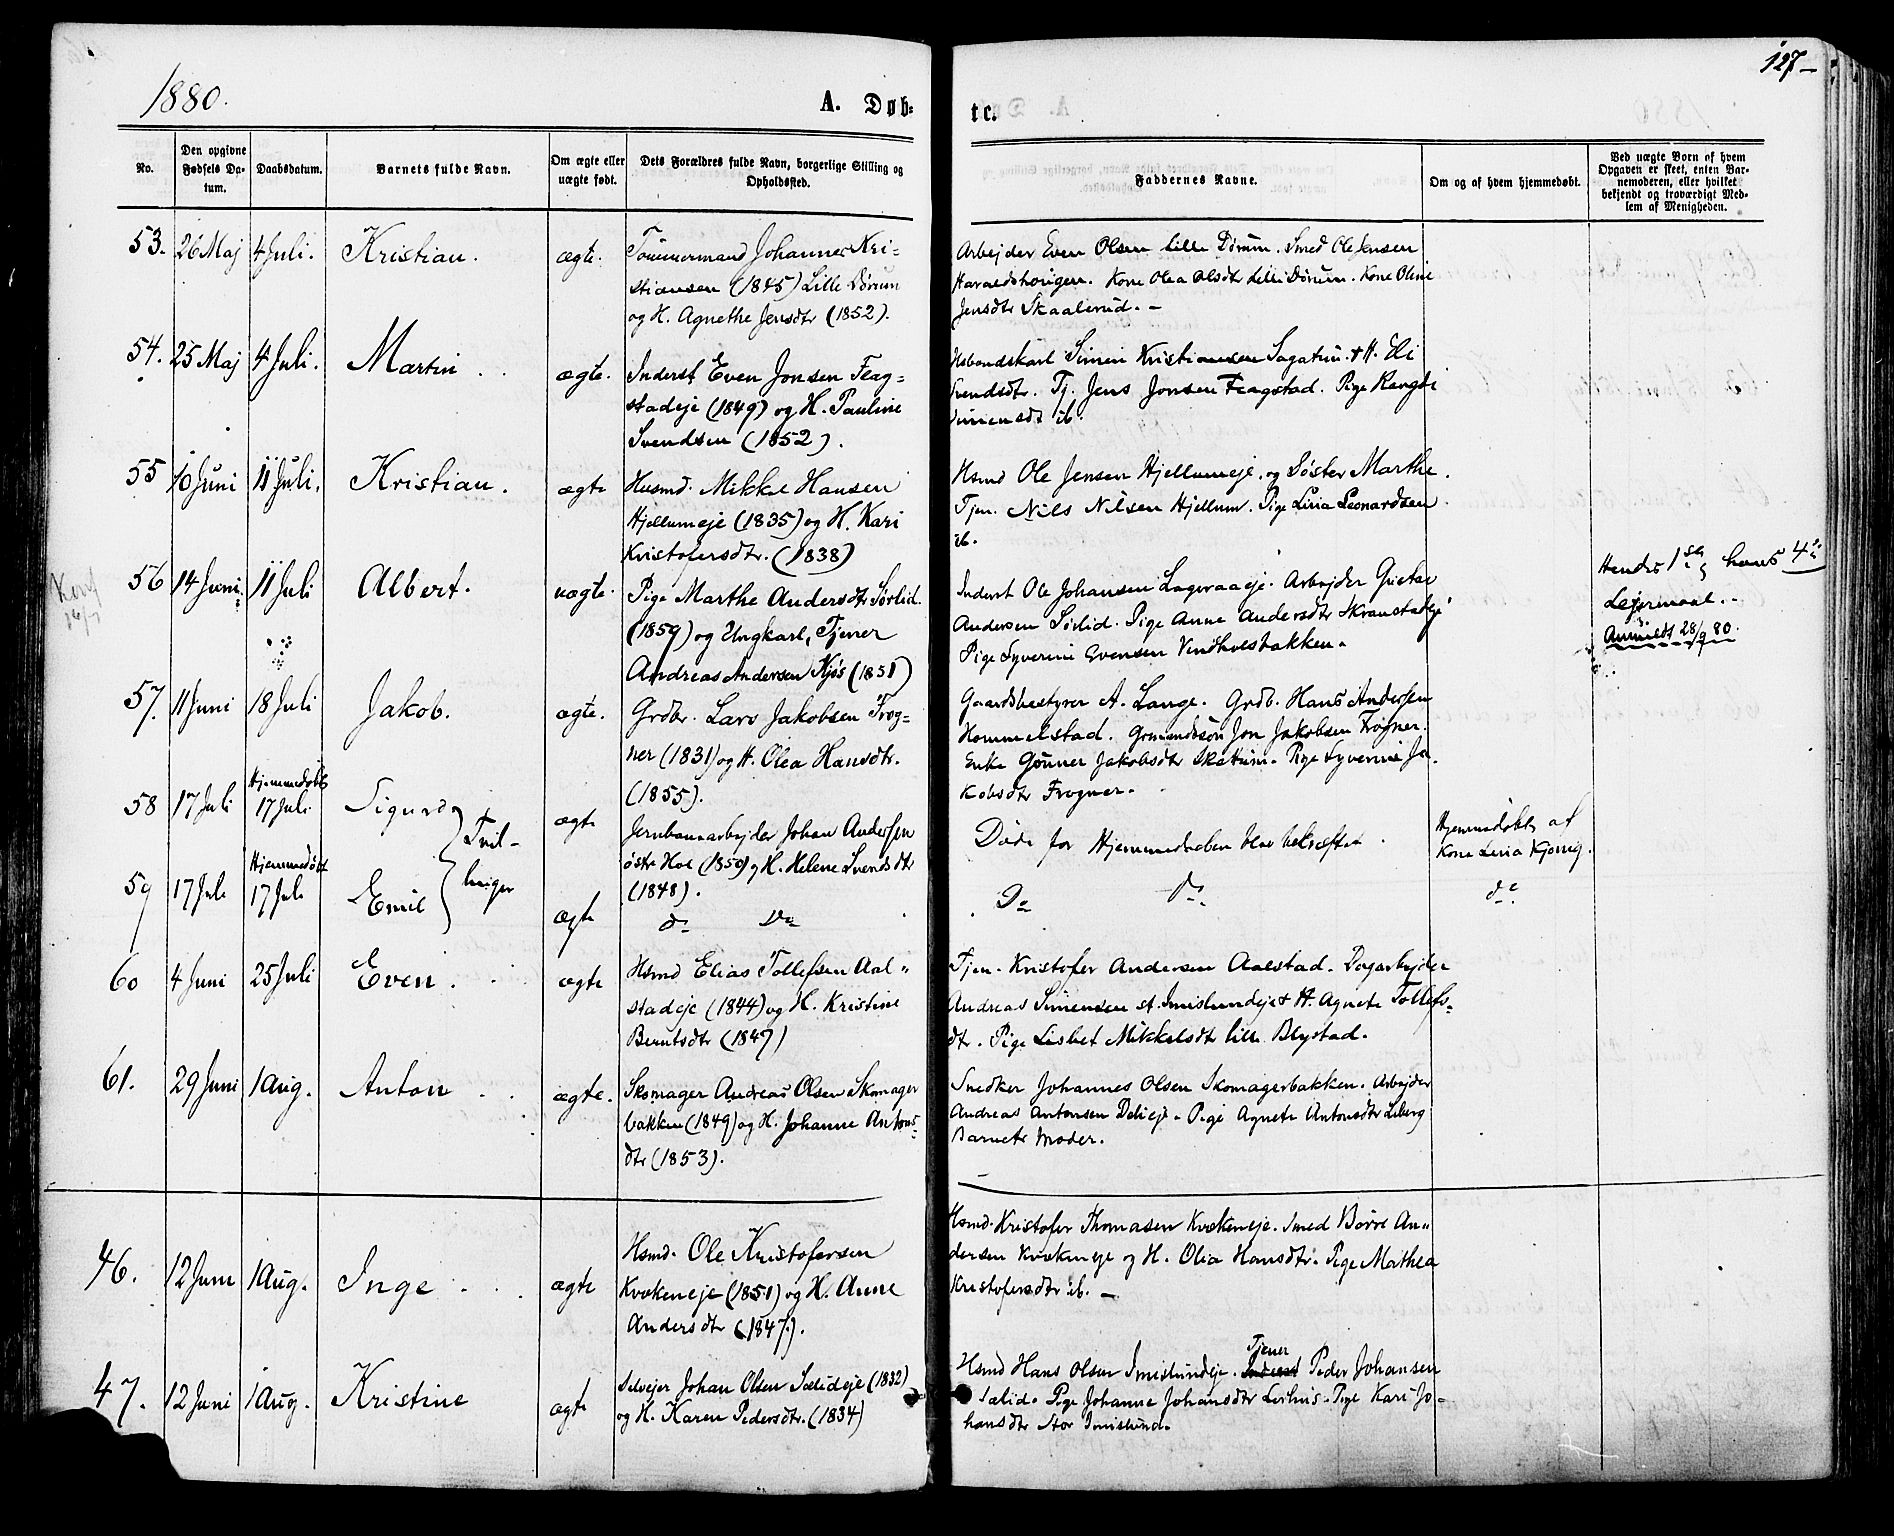 1880.
A. Døb=
tc.
127
No.
Den opgivne Fødsels Da-tum.
Daabsdatum.
Barnets fulde Navn.
Om ægte eller uægte født.
Dets Forældres fulde Navn, borgerlige Stilling og Opholdssted.
Faddernes Navne.
Om og af hvem hjemmedøbt.
Ved uægte Børn af hvem Opgaven er skeet, enten Bar-nemoderen, eller hvilket bekjendt og troværdigt Med-lem af Menigheden.
53. 26 Maj 4 Juli. Kristian. ægte.
Tømmermand Johannes Kri-
stiansen (1845) Lille Dørum
og H. Agnethe Jensdtr (1852).
Arbejder Even Olsen lille Dørum. Smed Ole Jensen
Haraldshougen. Kone Olea Olsdtr Lille Dørum. Kone Oline
Jensdtr Skaalerud. -
54. 25 Maj 4 Juli. Martin . . ægte.
Inderst Even Jonsen Flag=
stadeje (1849) og H. Pauline
Svendsen (1852).
Simen Kristiansen Sagatun. & H. Eli
Svendsdtr. Tj. Jens Jonsen Flagstad. Pige
Simensdt ib.
55 10 Juni 11 Juli. Kristian. ægte
Husmd. Mikkel Hansen
Hjellumeje (1835) og H. Kari
Kristofersdtr. (1838)
Hsmd Ole Jensen Hjellumeje, og Søster Marthe.
Tjen. Nils Nilsen Hjellum. Pige Lina Leonardsen
ib.
56 14 Juni. 11 Juli Albert. uægte.
Pige Marthe Andersdtr Sørlid.
(1859) og Ungkarl, Tjener
Andreas Andersen Kjøs (1851)
Inderst Ole Johansen Lageraaeje. Arbejder
Andersen Sørlid. Pige Anne Andersdtr Skramstadeje
Pige Syverine Evensen Vindholsbakken.
Hendes 1ste, hans 4de
Lejermaal. -
Anmeldt 28/9 80.
57. 11 Juni 18 Juli Jakob. ægte.
Grdbr. Lars Jakobsen Frog=
ner (1831) og H. Olea Hansdtr.
(1855).
Gaardsbestyrer A. Lange. Grdb. Hans Andersen
Hommelstad. Grmandssøn Jon Jakobsen Frogner.
Enke Gunner Jakobsdtr Skattum. Pige Syverine Ja-
kobsdtr Frogner.
58 17 Juli Hjemmedøbt 17 Juli Sigurd ægte
Tvil-
linger
Jernbanearbejder Johan Andersen
østre Hol (1850) og H. Helene Svendsdtr
(1848).
Døde før Hjemmedaaben blev bekræftet.
Hjemmedøbt af
Kone Lina
59 17 Juli Hjemmedøbt 17 Juli Emil ægte
do Do
Do do
do
60 4 Juni 25 Juli Even. ægte
Hsmd Elias Tollefsen Aal=
stadeje (1844) og H. Kristine
Berntsdtr (1847)
Tjen. Kristofer Andersen Aalstad. Dagarbejder
Andreas Simensen st. Imislundeje & H. Agnete Tollefs-
dtr. Pige Lisbet Mikkelsdtr lille Blystad.
61. 29 Juni 1 Aug. Anton . . ægte.
Skomager Andreas Olsen Skomager
bakken (1849) og H. Johanne Antons-
dtr (1853).
Snedker Johannes Olsen Skomagerbakken. Arbejder
Andreas Antonsen Delieje. Pige Agnete Antonsdtr Liberg
Barnets Moder.
46. 12 Juni 1 Aug. Inge . . . ægte
Hsmd. Ole Kristofersen
Kvækeneje (1851) og H. Anne
Andersdtr (1847).
Hsmd. Kristofer Thomasen Kvækeneje. Smed Børre An=
dersen Kvækeneje og H. Olea Hansdtr. Pige Mathea
Kristofersdtr ib. -
47. 12 Juni 1 Aug. Kristine ægte
Selvejer Johan Olsen Sælideje (1832)
og H. Karen Pedersdtr. (1834)
Hsmd Hans Olsen Imislundeje. Tjener Inderst Peder Johansen
Sælid. Pige Johanne Johansdtr Pige Kari Jo-
hansdtr Stor Imislund.